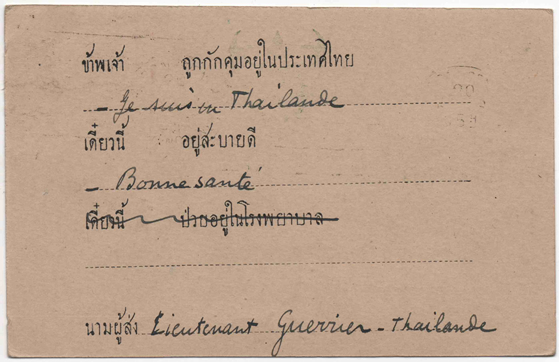 ข้าพเจ้า ถูกกักคุมอยู่ในประเทศไทย
- Je suis en Thailande
เดี๋ยวนี้ อยู่สะบายดี
- Bonne santé
เดี๋ยวนี้ ป่วยอยู่ในโรงพยาบาล
นามผู้ส่ง Lieutenant Guerrier - Thailande